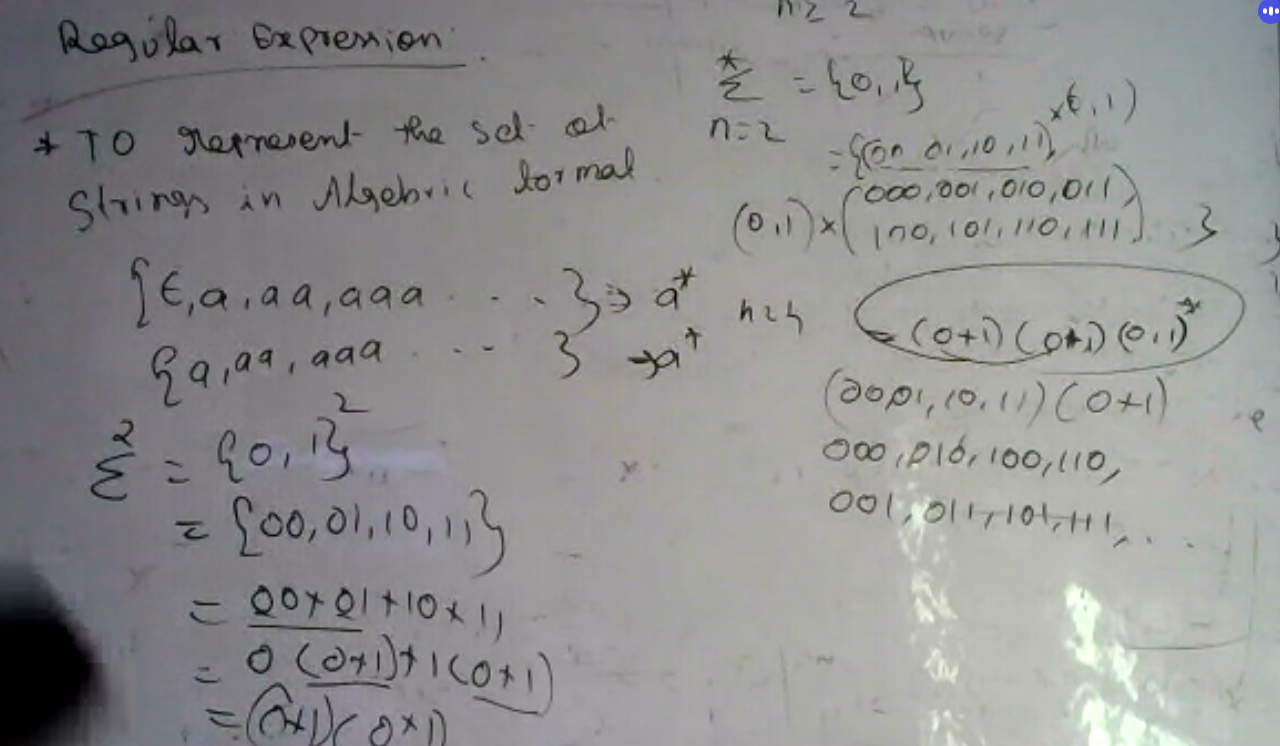 Regular Expression
* TO represent the set of
strings in Algebric format
{ϵ, a, aa, aaa . . . } ⇒ a*
{a, aa, aaa . . . } → a⁺
Σ² = {0, 1}²
= {00, 01, 10, 11}
= 00+01+10+11
= 0 (0+1)+1(0+1)
= (0+1)(0+1)
n≥2
Σ* = {0,1}
n=2
={(00 01,10,11)
(0,1)×(000,001,010,011
100,101,110,111) . . . }
= (0+1) (0+1) (0,1)*
(00,01,10,11)(0+1)
000,010,100,110,
001,011,101,111, . . .